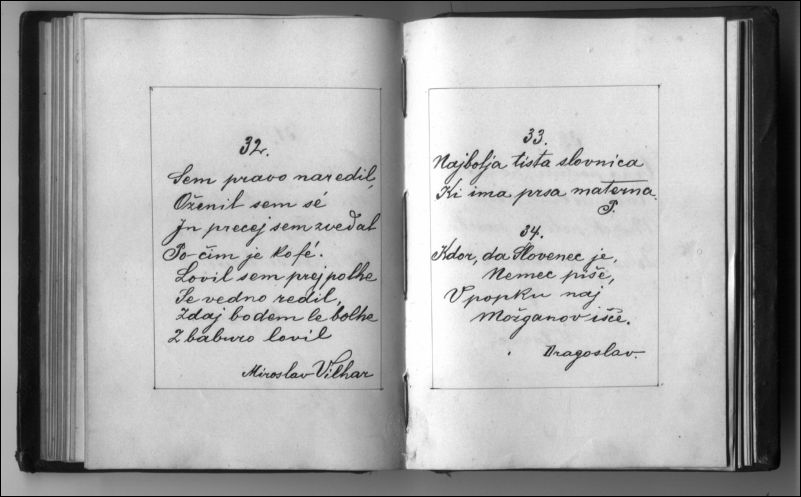 32.
Sem pravo naredil,
Oženil sem sé
In precej sem zvedal
Po čim je kofé.
Lovil sem prej polhe
Se vedno redil,
Zdaj bodem le bolhe
Z baburo lovil
Miroslav Vilhar
33.
Najbolja tista slovnica
Ki ima prsa materna.
P.
34.
Kdor, da Slovenec je,
Nemec piše,
V popku naj
Možganov išče.
Dragoslav.